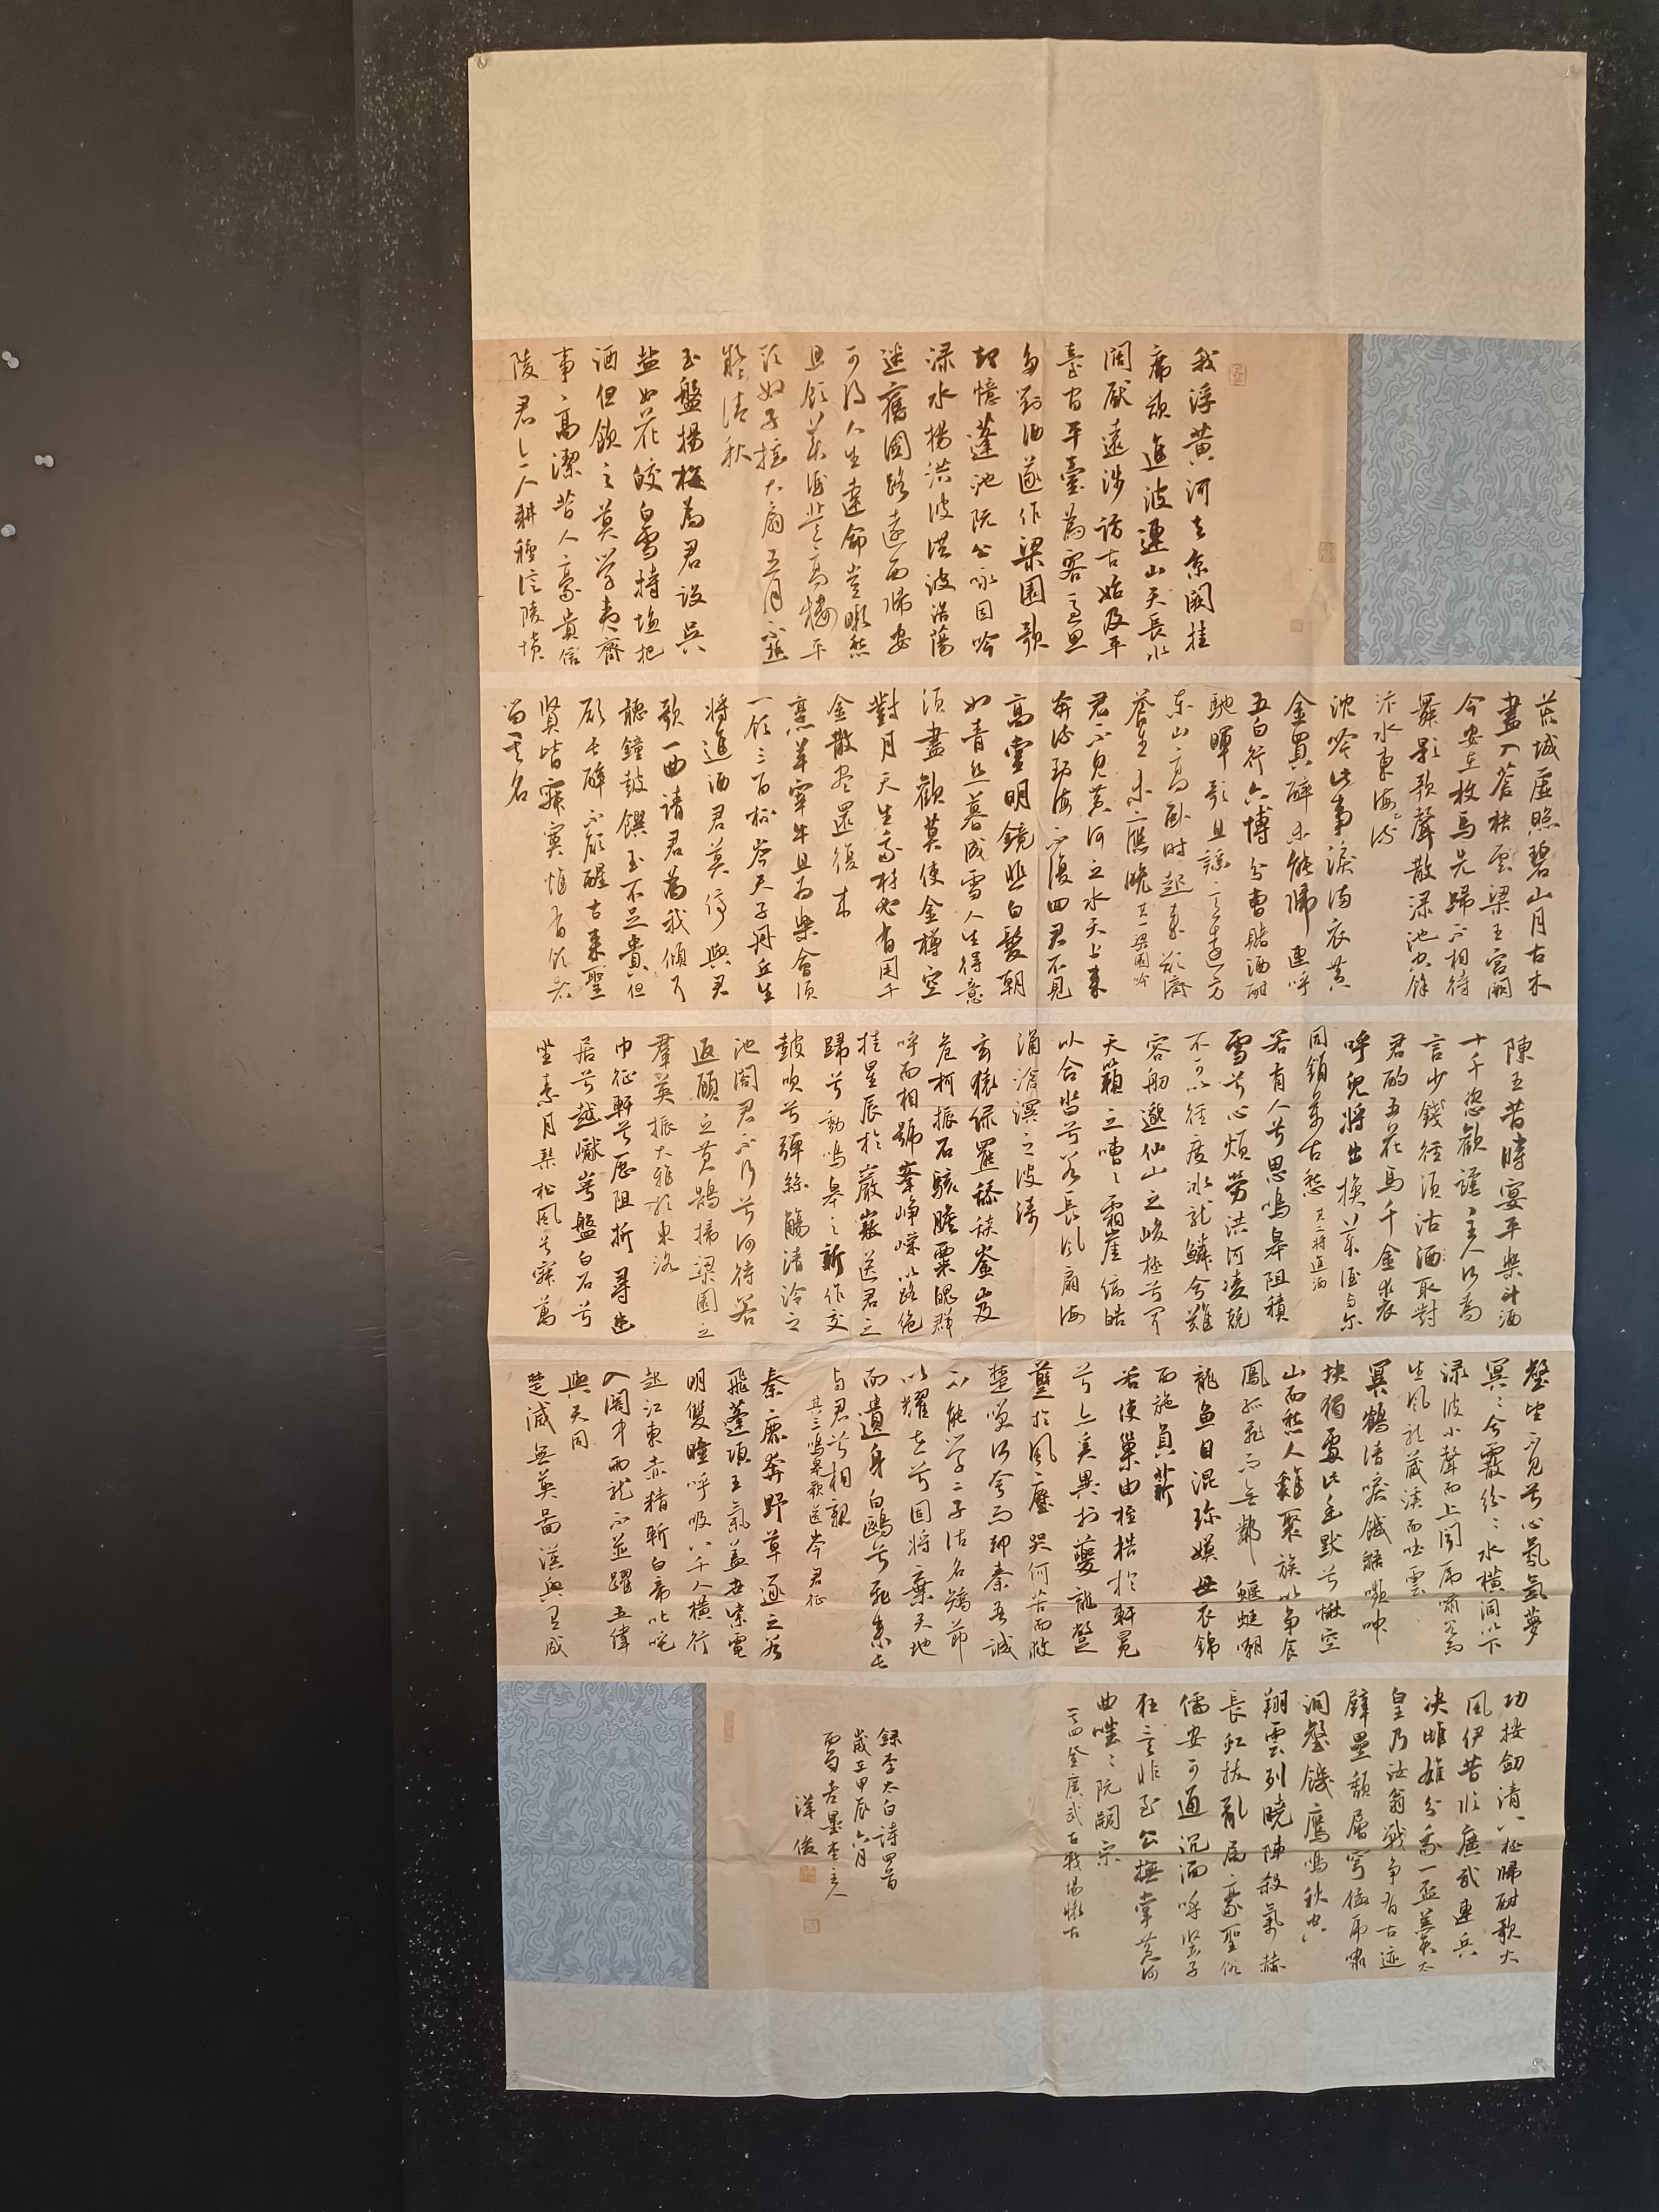 我浮黄河去京闕挂
席欲進波連山天長水
闊厭遠涉訪古始及平
臺間平臺為客憂思
多對酒遂作梁園歌
却憶蓬池阮公詠因吟
渌水揚洪波洪波浩蕩
迷舊國路遠西歸安
可得人生達命豈暇愁
且飲美酒登高樓平
頭奴子搖大扇五月不熱
疑清秋
玉盤楊梅為君設吳
鹽如花皎白雪持鹽把
酒但飲之莫學夷齊
事高潔昔人豪貴信
陵君今人耕種信陵墳
荒城虛照碧山月古木
盡入蒼梧雲梁王宮闕
今安在枚馬先歸不相待
舞影歌聲散渌池空餘
汴水東海流
沈吟此事淚滿衣黃
金買醉未能歸連呼
五白行六博分曹賭酒酣
馳暉歌且謠意遠方
東山高卧時起來欲濟
蒼生未應晚其一梁園吟
君不見黃河之水天上來
奔流到海不復回君不見
高堂明鏡悲白髮朝
如青絲暮成雪人生得意
須盡歡莫使金樽空
對月天生我材必有用千
金散盡還復來
烹羊宰牛且為樂會須
一飲三百杯岑夫子丹丘生
將進酒君莫停與君
歌一曲請君為我傾耳
聽鐘鼓饌玉不足貴但
願長醉不願醒古來聖
賢皆寂寞惟有飲者
留其名
陳王昔時宴平樂斗酒
十千恣歡謔主人何為
言少錢徑須沽酒取對
君酌五花馬千金裘
呼兒將出換美酒与尔
同銷萬古愁其二將進酒
若有人兮思鳴皋阻積
雪兮心煩勞洪河凌兢
不可以徑度冰龍鱗兮難
容舠邈仙山之峻極兮聞
天籟之嘈嘈霜崖縞皓
以合沓兮若長風扇海
涌滄溟之波濤
玄猿綠羆舔舕崟岌
危柯振石駭膽栗魄群
呼而相號峯崢嶸以路絕
挂星辰於巖嶅送君之
歸兮動鳴皋之新作交
鼓吹兮彈絲觴清泠之
池閣君不行兮何待若
返顧之黃鵠掃梁園之
羣英振大雅於東洛
巾征軒兮歷阻折尋幽
居兮越巘崿盤白石兮
坐素月琴松風兮寂萬
壑望不見兮心氛氳夢
冥冥兮霰紛紛水橫洞以下
渌波小聲而上聞虎嘯谷而
生風龍藏溪而吐雲
冥鶴清唳飢鼯嚬呻
塊獨處此幽默兮愀空
山而愁人雞聚族以爭食
鳳孤飛而無鄰蝘蜓嘲
龍魚目混珍嫫母衣錦
西施負薪
若使巢由桎梏於軒冕
兮亦奚異於夔龍蹩
躠於風塵哭何苦而救
楚笑何夸而却秦吾誠
不能學二子沽名矯節
以耀世兮固將棄天地
而遺身白鷗兮飛來長
与君兮相親
其三鳴皋歌送岑君征
秦鹿奔野草逐之若
飛蓬項王氣蓋世紫電
明雙瞳呼吸八千人橫行
起江東赤精斬白帝叱咤
入關中兩龍不並躍五緯
與天同
楚滅無英圖漢興有成
功按劍清八極歸酣歌大
風伊昔臨廣武連兵
決雌雄分我一盃羹太
皇乃汝翁戰爭有古迹
壁壘頹層穹猛虎嘯
洞壑饑鷹鳴秋空
翔雲列曉陣殺氣赫
長虹撥亂屬豪聖俗
儒安可通沉湎呼豎子
狂言非至公撫掌黃河
曲嗤嗤阮嗣宗
其四登廣武古戰場懷古
錄李太白詩四首
歲在甲辰六月
洋俊